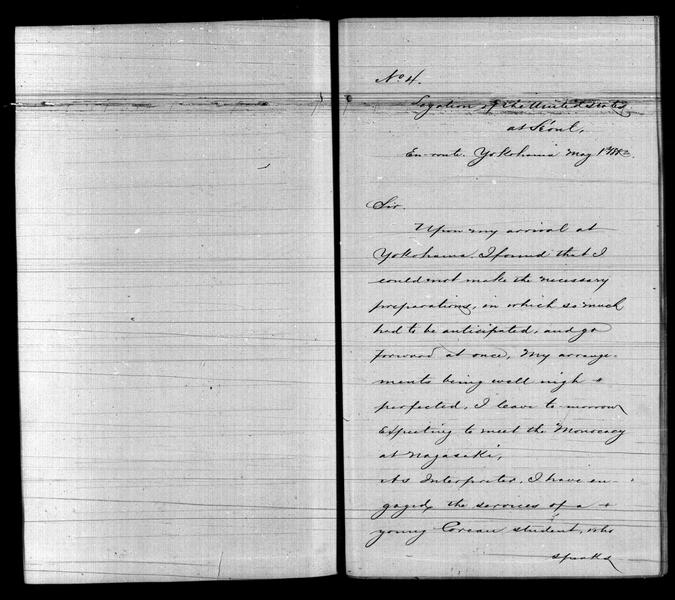 No 4.
Legation of the United States
at Séoul,
En-route. Yokohama May 1st 1883.
Sir.
Upon my arrival at
Yokohama. I found that I
could not make the necessary
preparations, in which so much
had to be anticipated, and go
forward at once, My arrange-
ments being well nigh
perfected, I leave to-morrow
expecting to meet the Monocacy
at Nagasaki,
As Interpreter, I have en-
gaged, the services of a
young Corean student, who
speaks